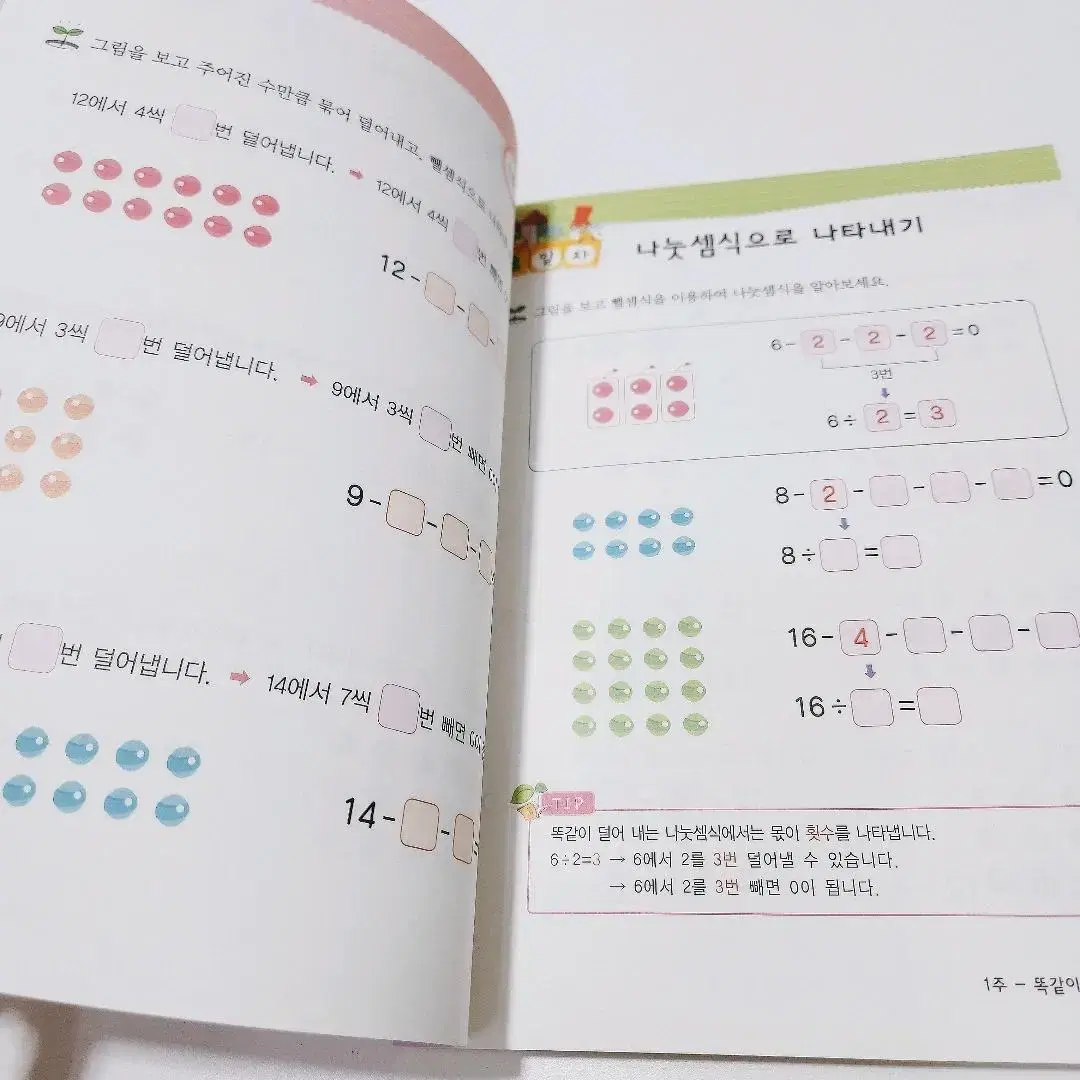 그림을 보고 주어진 수만큼 묶어 덜어내고, 뺄셈식으로
12에서 4씩 번 덜어냅니다. ➡ 12에서 4씩 번 빼면
12- -
9에서 3씩 번 덜어냅니다. ➡ 9에서 3씩 번 빼면
9- - -
번 덜어냅니다. ➡ 14에서 7씩 번 빼면
14- - =
일차 나눗셈식으로 나타내기
그림을 보고 뺄셈식을 이용하여 나눗셈식을 알아보세요.
6-2-2-2=0
3번
6÷2=3
8-2- - - =0
8÷ =
16-4- - -
16÷ =
TIP
똑같이 덜어 내는 나눗셈식에서는 몫이 횟수를 나타냅니다.
6÷2=3 → 6에서 2를 3번 덜어낼 수 있습니다.
→ 6에서 2를 3번 빼면 0이 됩니다.
1주 - 똑같이